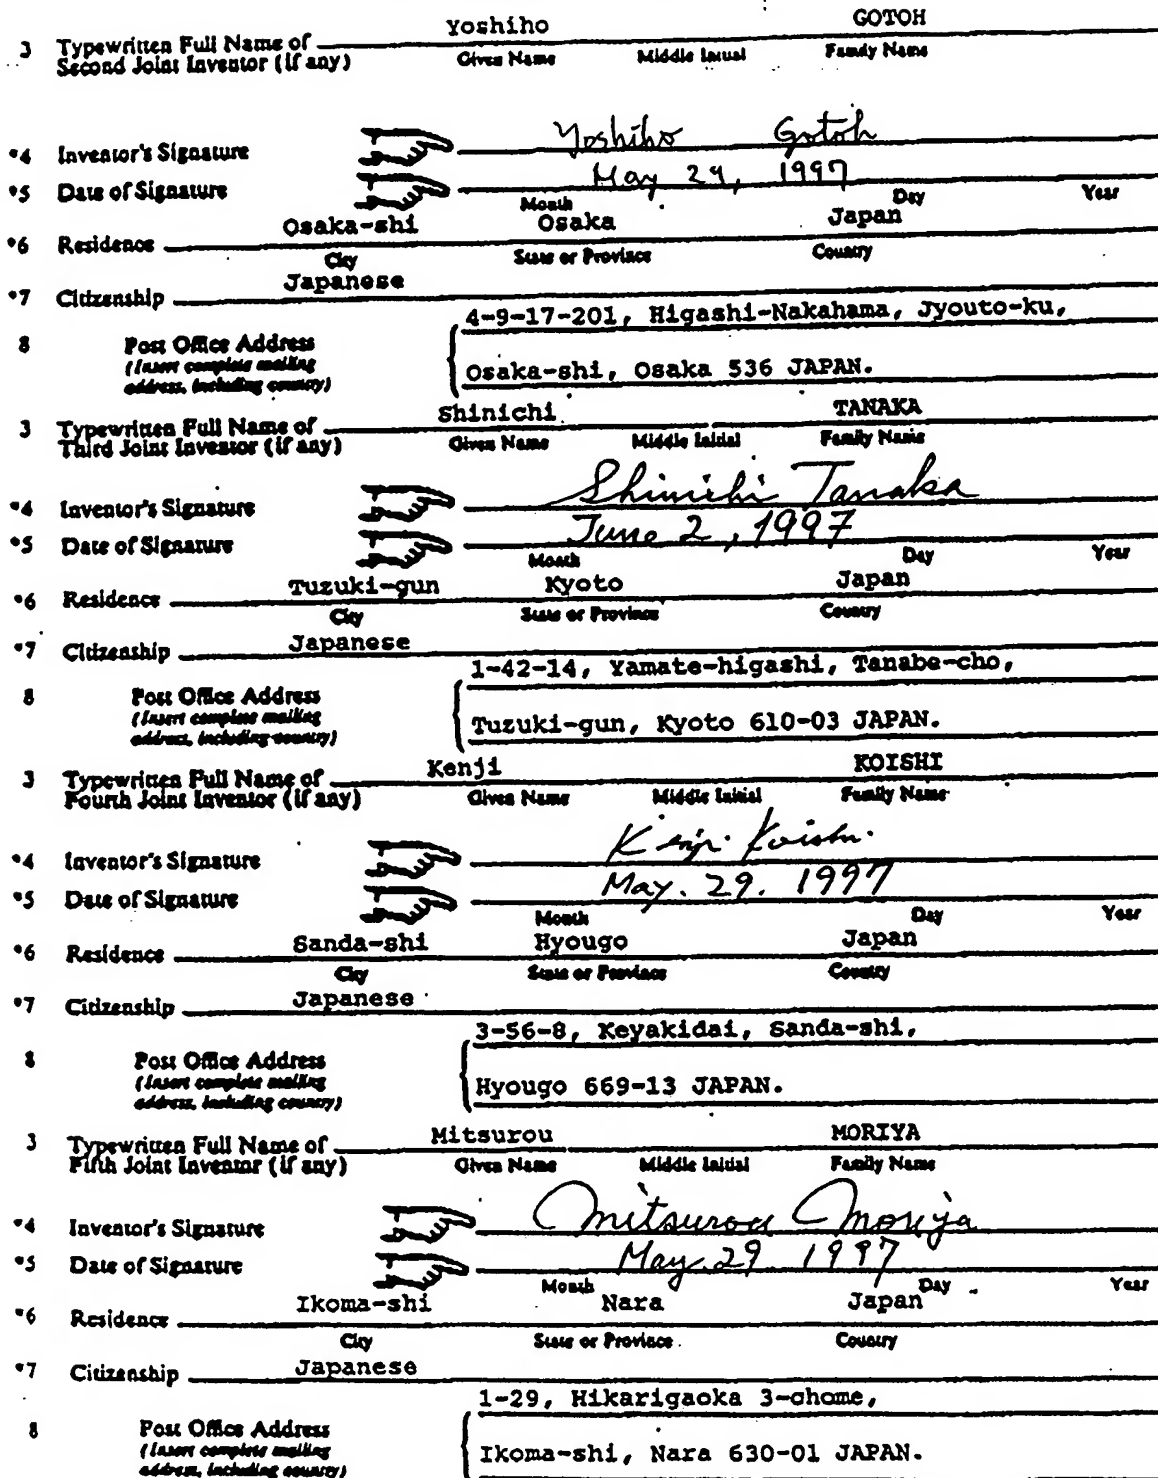 Yoshiho GOTOH
3 Typewritten Full Name of
Second Joint Inventor (if any) Given Name Middle Initial Family Name
*4 Inventor's Signature Yoshiho Gotoh
*5 Date of Signature May 29, 1997
Month Day Year
*6 Residence Osaka-shi Osaka Japan
City State or Province Country
*7 Citizenship Japanese
8 Post Office Address 4-9-17-201, Higashi-Nakahama, Jyouto-ku,
(Insert complete mailing
address, including country) Osaka-shi, Osaka 536 JAPAN.
Shinichi TANAKA
3 Typewritten Full Name of
Third Joint Inventor (if any) Given Name Middle Initial Family Name
*4 Inventor's Signature Shinichi Tanaka
*5 Date of Signature June 2, 1997
Month Day Year
*6 Residence Tuzuki-gun Kyoto Japan
City State or Province Country
*7 Citizenship Japanese
8 Post Office Address 1-42-14, Yamate-higashi, Tanabe-cho,
(Insert complete mailing
address, including country) Tuzuki-gun, Kyoto 610-03 JAPAN.
Kenji KOISHI
3 Typewritten Full Name of
Fourth Joint Inventor (if any) Given Name Middle Initial Family Name
*4 Inventor's Signature Kenji Koishi
*5 Date of Signature May. 29. 1997
Month Day Year
*6 Residence Sanda-shi Hyougo Japan
City State or Province Country
*7 Citizenship Japanese
8 Post Office Address 3-56-8, Keyakidai, Sanda-shi,
(Insert complete mailing
address, including country) Hyougo 669-13 JAPAN.
Mitsurou MORIYA
3 Typewritten Full Name of
Fifth Joint Inventor (if any) Given Name Middle Initial Family Name
*4 Inventor's Signature Mitsurou Moriya
*5 Date of Signature May. 29 1997
Month Day Year
*6 Residence Ikoma-shi Nara Japan
City State or Province Country
*7 Citizenship Japanese
8 Post Office Address 1-29, Hikarigaoka 3-chome,
(Insert complete mailing
address, including country) Ikoma-shi, Nara 630-01 JAPAN.